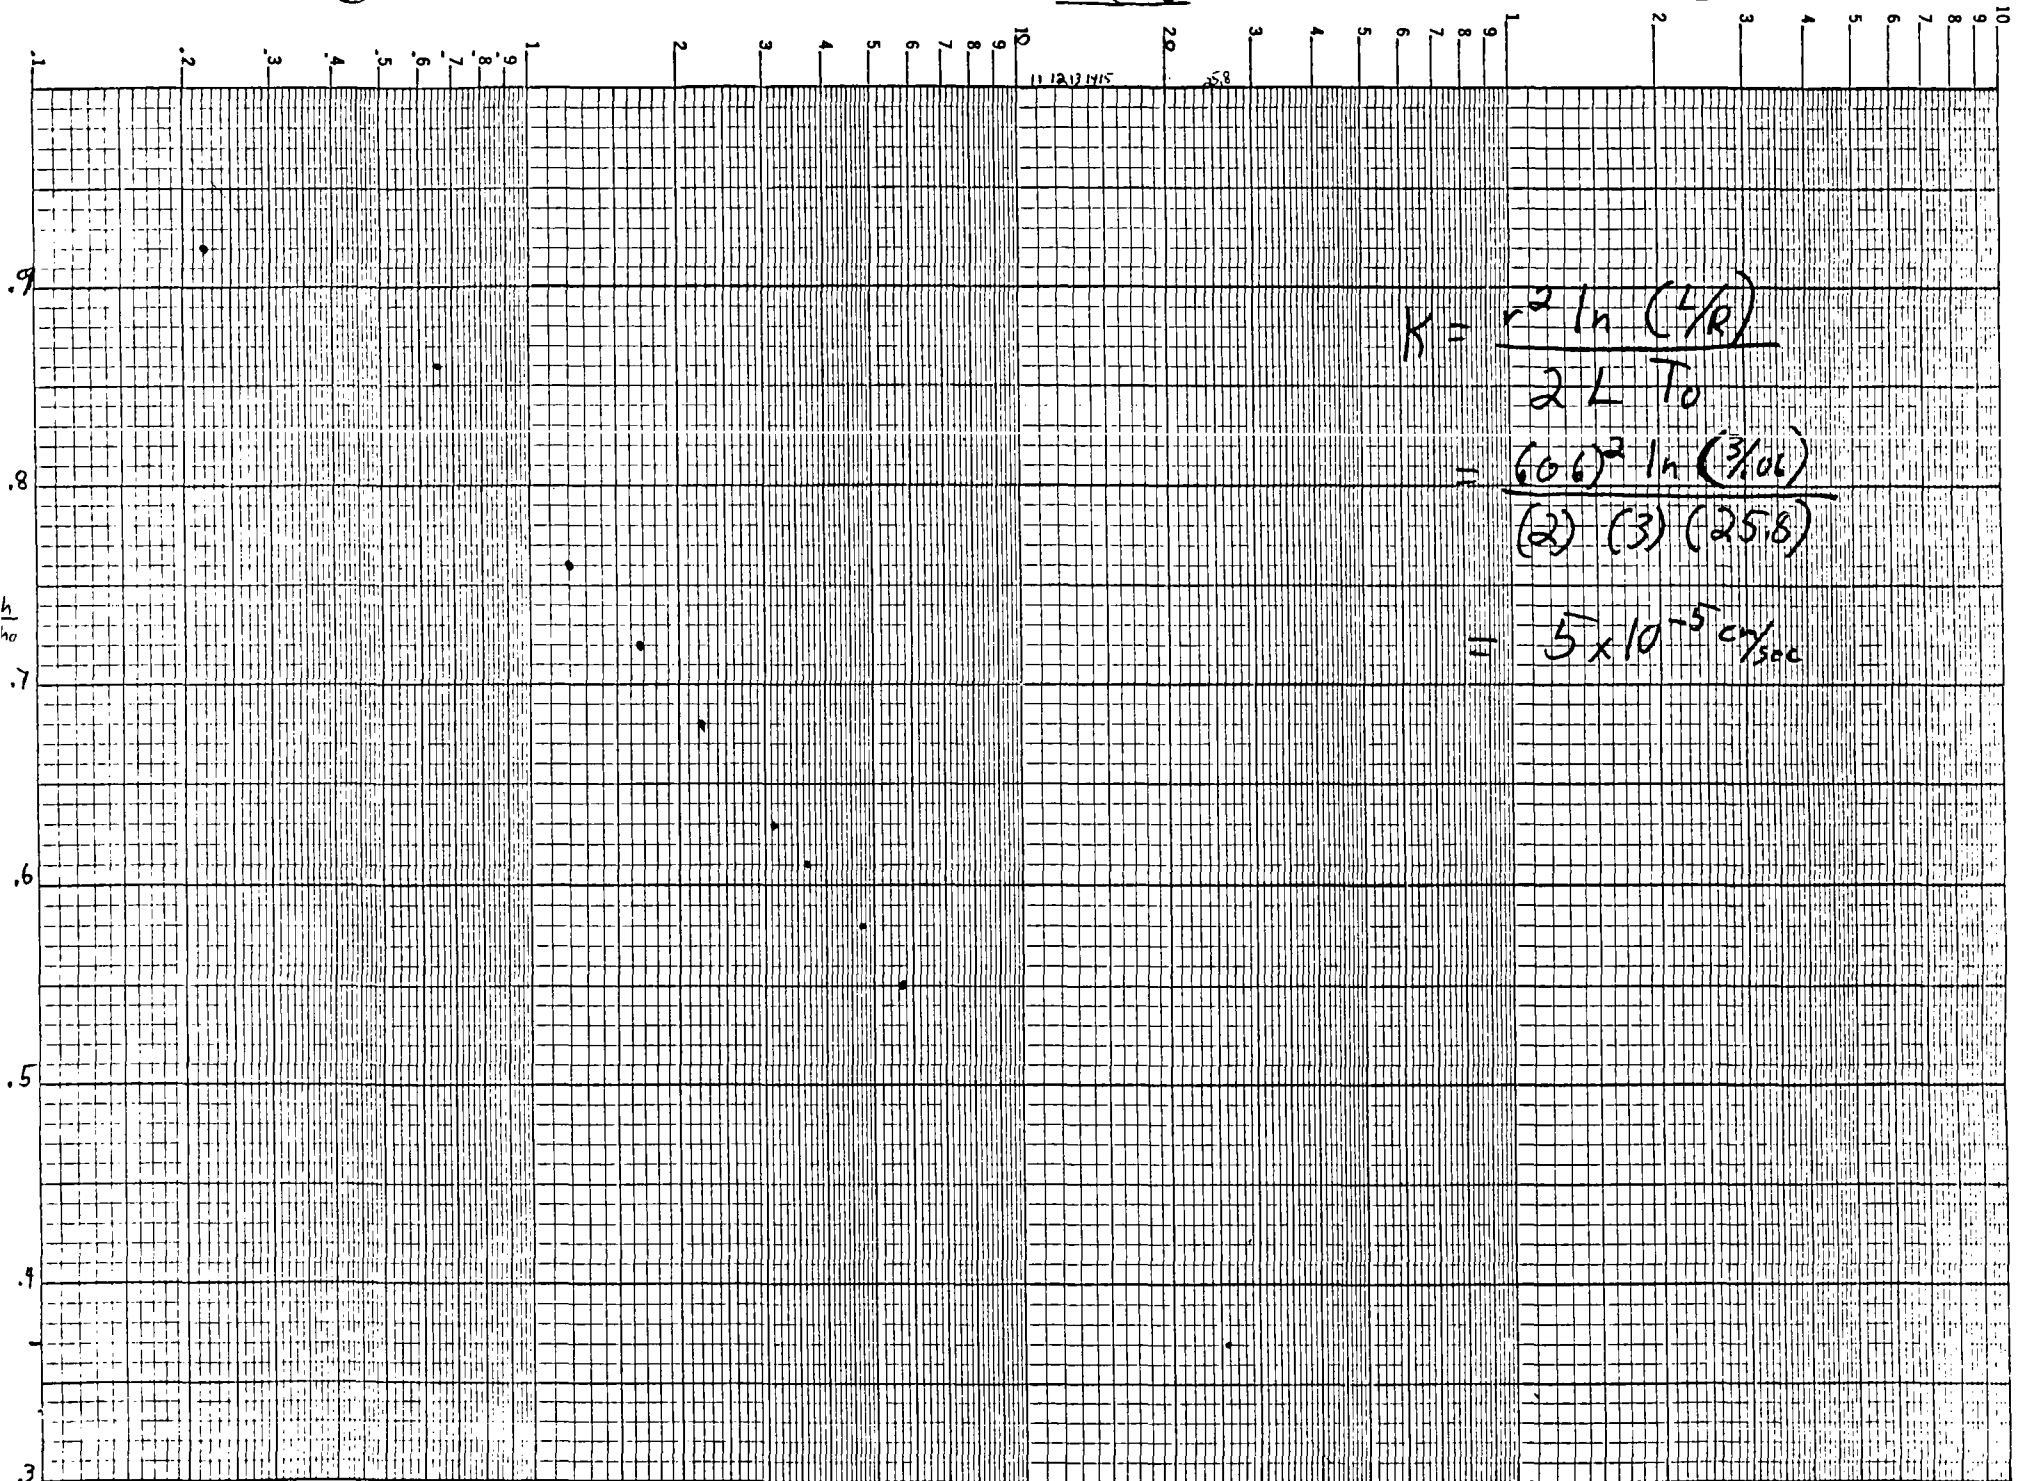 .1 .2 .3 .4 .5 .6 .7 .8 .9 1 2 3 4 5 6 7 8 9 10 20 3 4 5 6 7 8 9 1 2 3 4 5 6 7 8 9 10
11 12 13 14 15 25.8
.9
.8
h/ho
.7
.6
.5
.4
.3
K = r² ln (L/R)
2 L To
= (.06)² ln (3/.06)
(2) (3) (25.8)
= 5 x 10⁻⁵ cm/sec